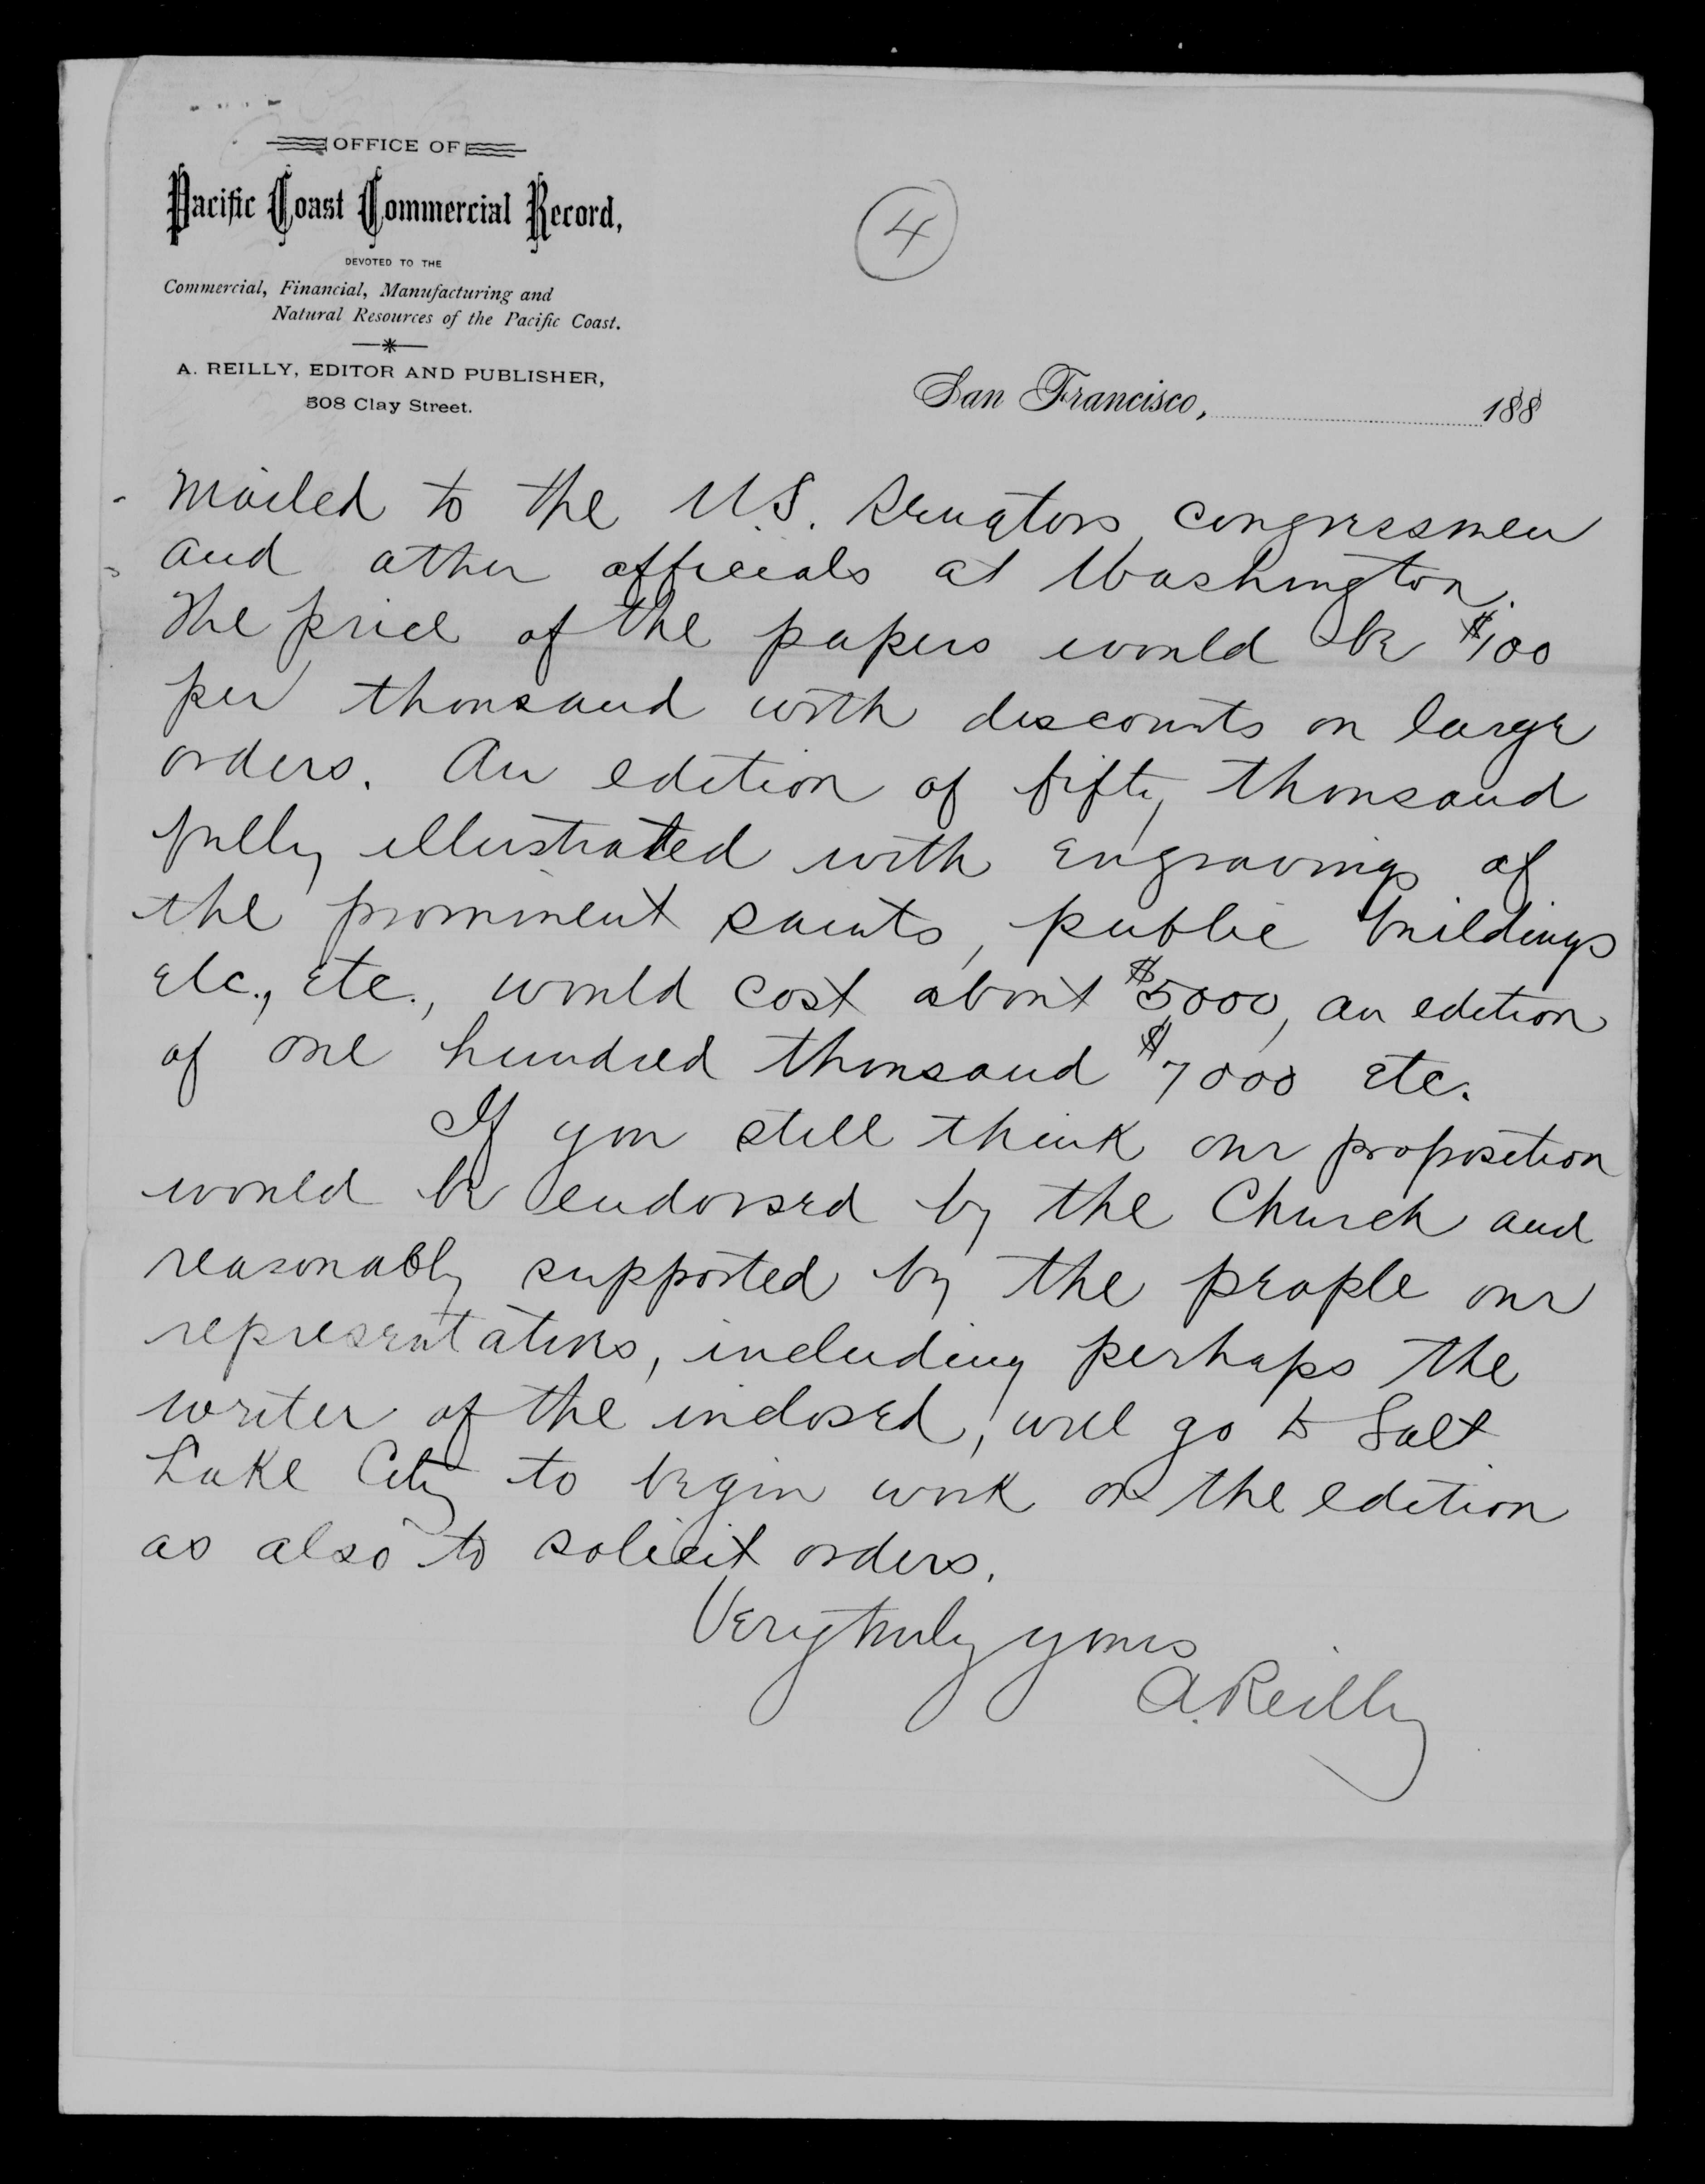 OFFICE OF
Pacific Coast Commercial Record,
DEVOTED TO THE
Commercial, Financial, Manufacturing and
Natural Resources of the Pacific Coast.
A. REILLY, EDITOR AND PUBLISHER,
308 Clay Street.
4
San Francisco, 188
mailed to the U.S. Senators, congressmen
and other officials at Washington.
The price of the papers would be $100
per thousand with discounts on large
orders. An edition of fifty thousand
fully illustrated with engravings of
the prominent saints, public buildings
etc., etc., would cost about $5,000, an edition
of one hundred thousand $7000 etc.
If you still think our proposition
would be endorsed by the Church and
reasonably supported by the people our
representatives, including perhaps the
writer of the inclosed, will go to Salt
Lake City to begin work on the edition
as also to solicit orders.
Very truly yours
A. Reilly